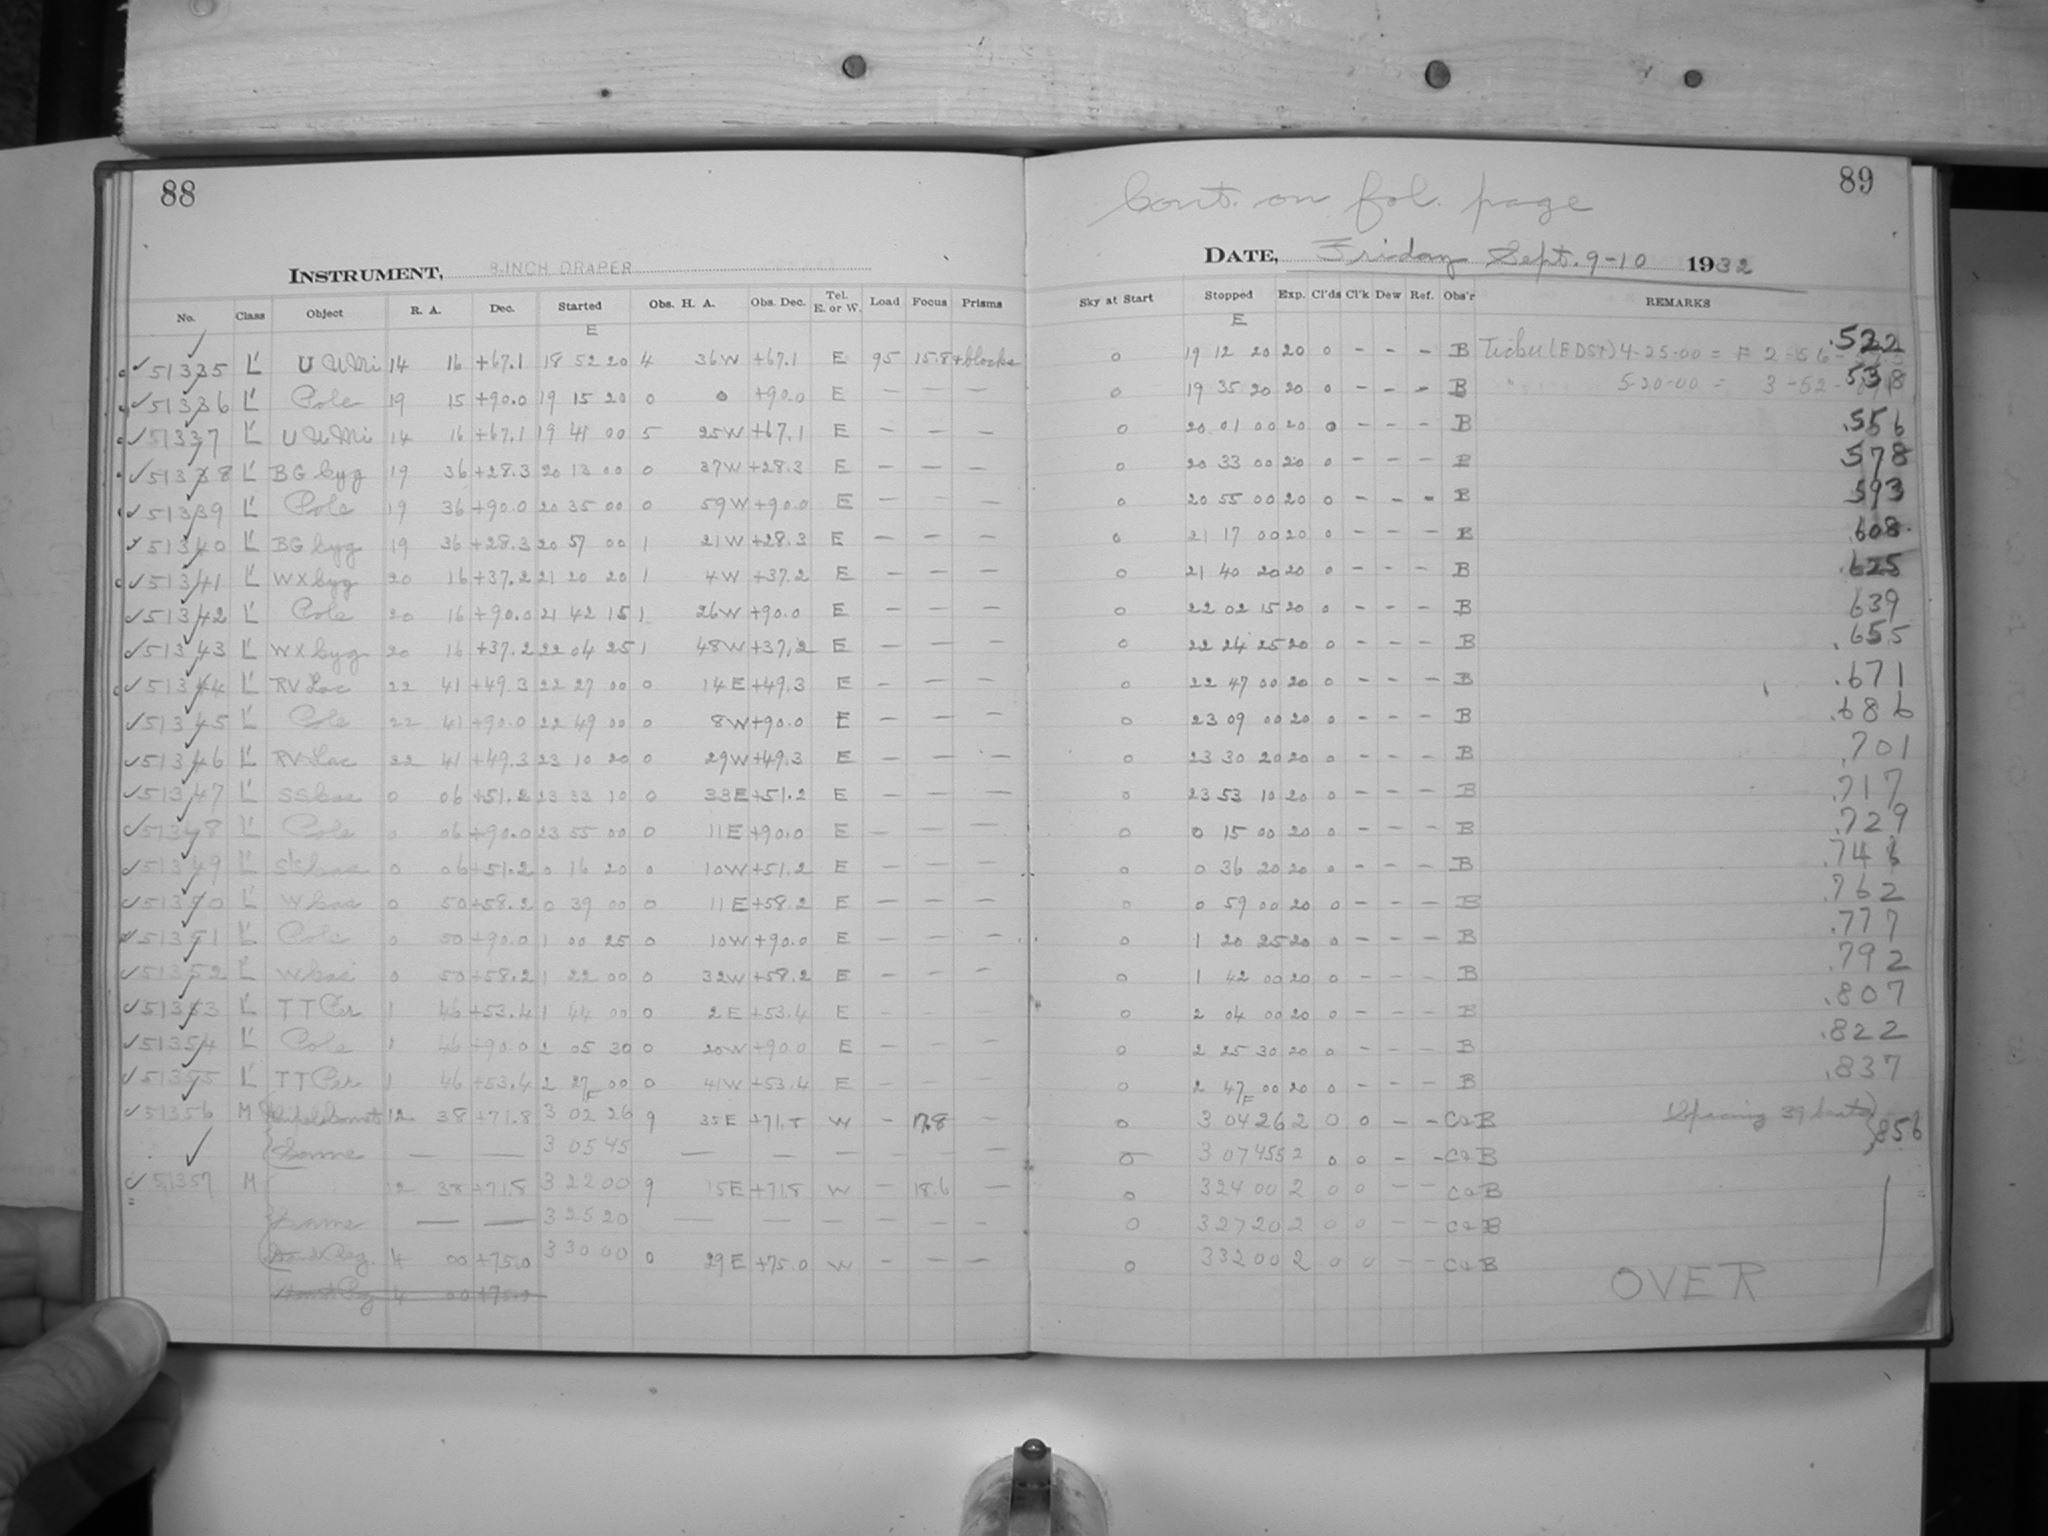 88
INSTRUMENT, 8-INCH DRAPER
No. Class Object R. A. Dec. Started Obs. H. A. Obs. Dec. Tel. E. or W. Load Focus Prisms
E
51335 L' U UMi 14 16 +67.1 18 52 20 4 36W +67.1 E 95 15.8 +blocks
51336 L' Pole 19 15 +90.0 19 15 20 0 0 +90.0 E — — —
51337 L' U UMi 14 16 +67.1 19 41 00 5 25W +67.1 E — — —
51338 L' BG Cyg 19 36 +28.3 20 13 00 0 37W +28.3 E — — —
51339 L' Pole 19 36 +90.0 20 35 00 0 59W +90.0 E — — —
51340 L' BG Cyg 19 36 +28.3 20 57 00 1 21W +28.3 E — — —
51341 L' WX Cyg 20 16 +37.2 21 20 20 1 4W +37.2 E — — —
51342 L' Pole 20 16 +90.0 21 42 15 1 26W +90.0 E — — —
51343 L' WX Cyg 20 16 +37.2 22 04 25 1 48W +37.2 E — — —
51344 L' RV Lac 22 41 +49.3 22 27 00 0 14E +49.3 E — — —
51345 L' Pole 22 41 +90.0 22 49 00 0 8W +90.0 E — — —
51346 L' RV Lac 22 41 +49.3 23 10 20 0 29W +49.3 E — — —
51347 L' SS Cas 0 06 +51.2 23 33 10 0 33E +51.2 E — — —
51348 L' Pole 0 06 +90.0 23 55 00 0 11E +90.0 E — — —
51349 L' SS Cas 0 06 +51.2 0 16 20 0 10W +51.2 E — — —
51350 L' W Cas 0 50 +58.2 0 39 00 0 11E +58.2 E — — —
51351 L' Pole 0 50 +90.0 1 00 25 0 10W +90.0 E — — —
51352 L' W Cas 0 50 +58.2 1 22 00 0 32W +58.2 E — — —
51353 L' TT Per 1 46 +53.4 1 44 00 0 2E +53.4 E — — —
51354 L' Pole 1 46 +90.0 2 05 30 0 20W +90.0 E — — —
51355 L' TT Per 1 46 +53.4 2 27 00 0 41W +53.4 E — — —
F
51356 M Comet 12 38 +71.8 3 02 26 9 35E +71.8 W — 17.8
Same — — 3 05 45 — — — — — —
51357 M 12 38 +71.8 3 22 00 9 15E +71.8 W — 18.6 —
Same — — 3 25 20 — — — — — —
4 00 +75.0 3 30 00 0 29E +75.0 W — — —
4 00 +75.0
89
Cont. on fol. page
DATE, Friday Sept. 9-10 1932
Sky at Start Stopped Exp. Cl'ds Cl'k Dew Ref. Obs'r REMARKS
E
0 19 12 20 20 0 - - - B Ticker (EDST) 4-25-00 = F 2-56- .522
0 19 35 20 20 0 - - - B " 5-20-00 = 3-52- .538
0 20 01 00 20 0 - - - B .556
0 20 33 00 20 0 - - - B .578
0 20 55 00 20 0 - - - B .593
0 21 17 00 20 0 - - - B .608
0 21 40 20 20 0 - - - B .625
0 22 02 15 20 0 - - - B .639
0 22 24 25 20 0 - - - B .655
0 22 47 00 20 0 - - - B .671
0 23 09 00 20 0 - - - B .686
0 23 30 20 20 0 - - - B .701
0 23 53 10 20 0 - - - B .717
0 0 15 00 20 0 - - - B .729
0 0 36 20 20 0 - - - B
0 0 59 00 20 0 - - - B .762
0 1 20 25 20 0 - - - B .777
0 1 42 00 20 0 - - - B .792
0 2 04 00 20 0 - - - B .807
0 2 25 30 20 0 - - - B .822
0 2 47 00 20 0 - - - B .837
F
0 3 04 26 2 0 0 - - Ca B Spacing 39 .856
0 3 07 45 2 0 0 - - Ca B
0 3 24 00 2 0 0 - - Ca B
0 3 27 20 2 0 0 - - Ca B
0 3 32 00 2 0 0 - - Ca B
OVER